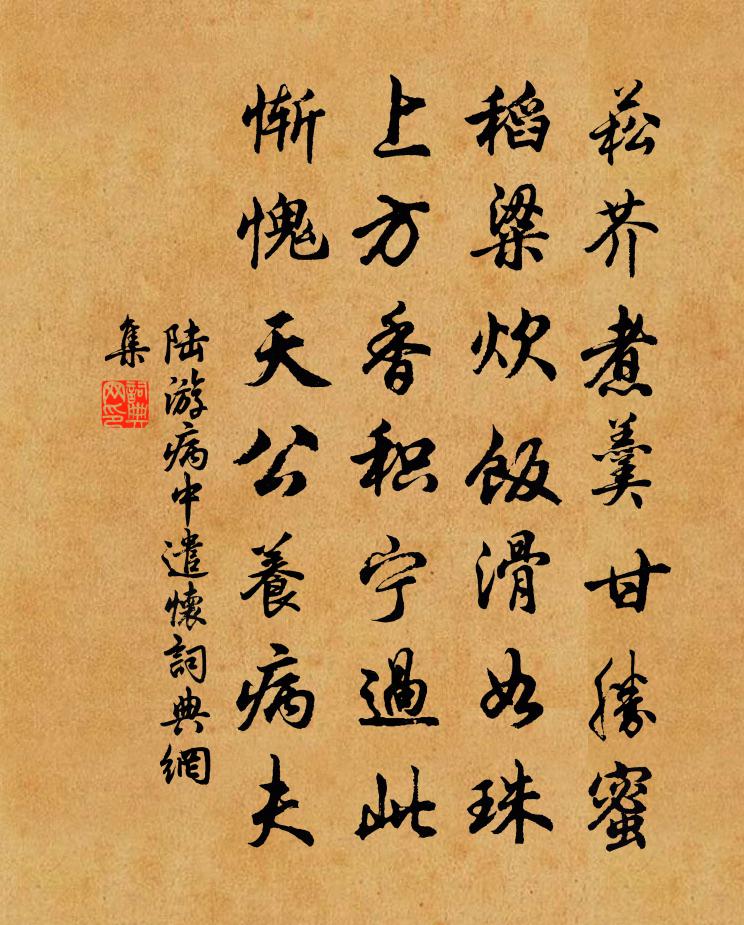 菘芥煮羹甘勝蜜
稻粱炊飯滑如珠
上方香积宁過此
惭愧天公養病夫
陆游病中遣懷詞典網
集
詞典
网印